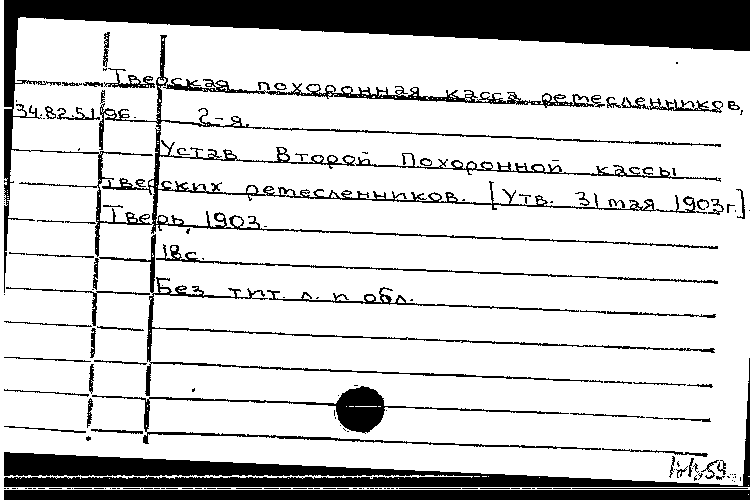 Тверская похоронная касса ремесленников,
34.82.51.96. 2-я.
Устав Второй Похоронной кассы
тверских ремесленников. [Утв. 31 мая 1903г.]
Тверь, 1903.
18с.
Без тит. л. и обл.